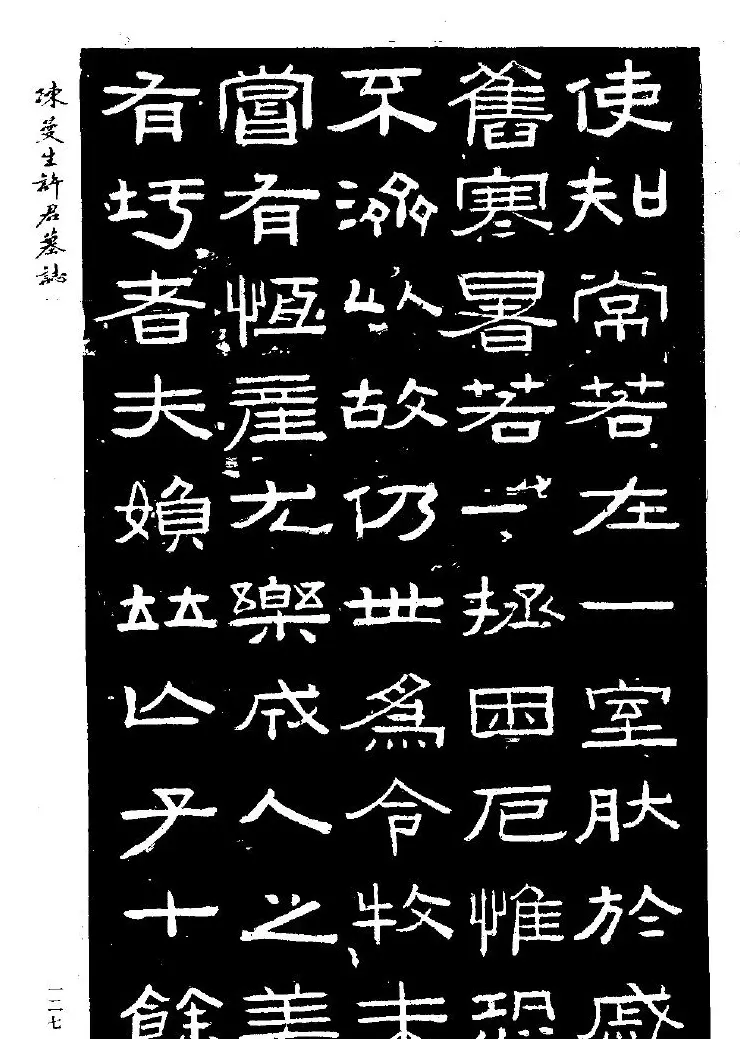 陳曼生許君墓誌
使知常若在一室肤於戚
舊寒暑若一拯困厄惟恐
不以故仍世為令牧未
嘗有恆產尤樂成人之美
有圬者夫媍竝亡子十餘
一二七